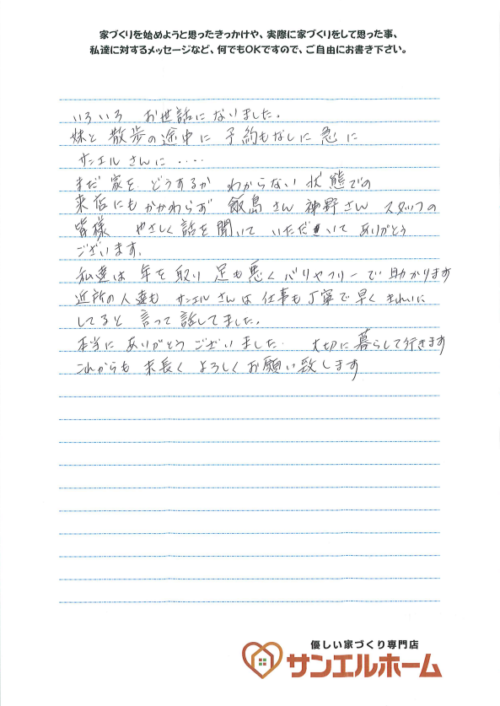 家づくりを始めようと思ったきっかけや、実際に家づくりをして思った事、
私達に対するメッセージなど、何でもOKですので、ご自由にお書き下さい。
いろいろ お世話になりました。
妹と 散歩の途中に 予約もなしに 急に
サンエル さんに ‥‥
まだ 家を どうするか わからない 状態での
来店にも かかわらず 飯島さん 神野さん スタッフの
皆様 やさしく 話を 聞いて いただいて ありがとう
ございます。
私達は 年を 取り 足も悪く バリヤフリーで 助かります
近所の人達も サンエルさんは 仕事も丁寧で 早く きれいに
してると 言って 話してました。
本当に ありがとうございました 大切に 暮らして行きます
これからも 末長く よろしくお願い致します
優しい家づくり専門店
サンエルホーム